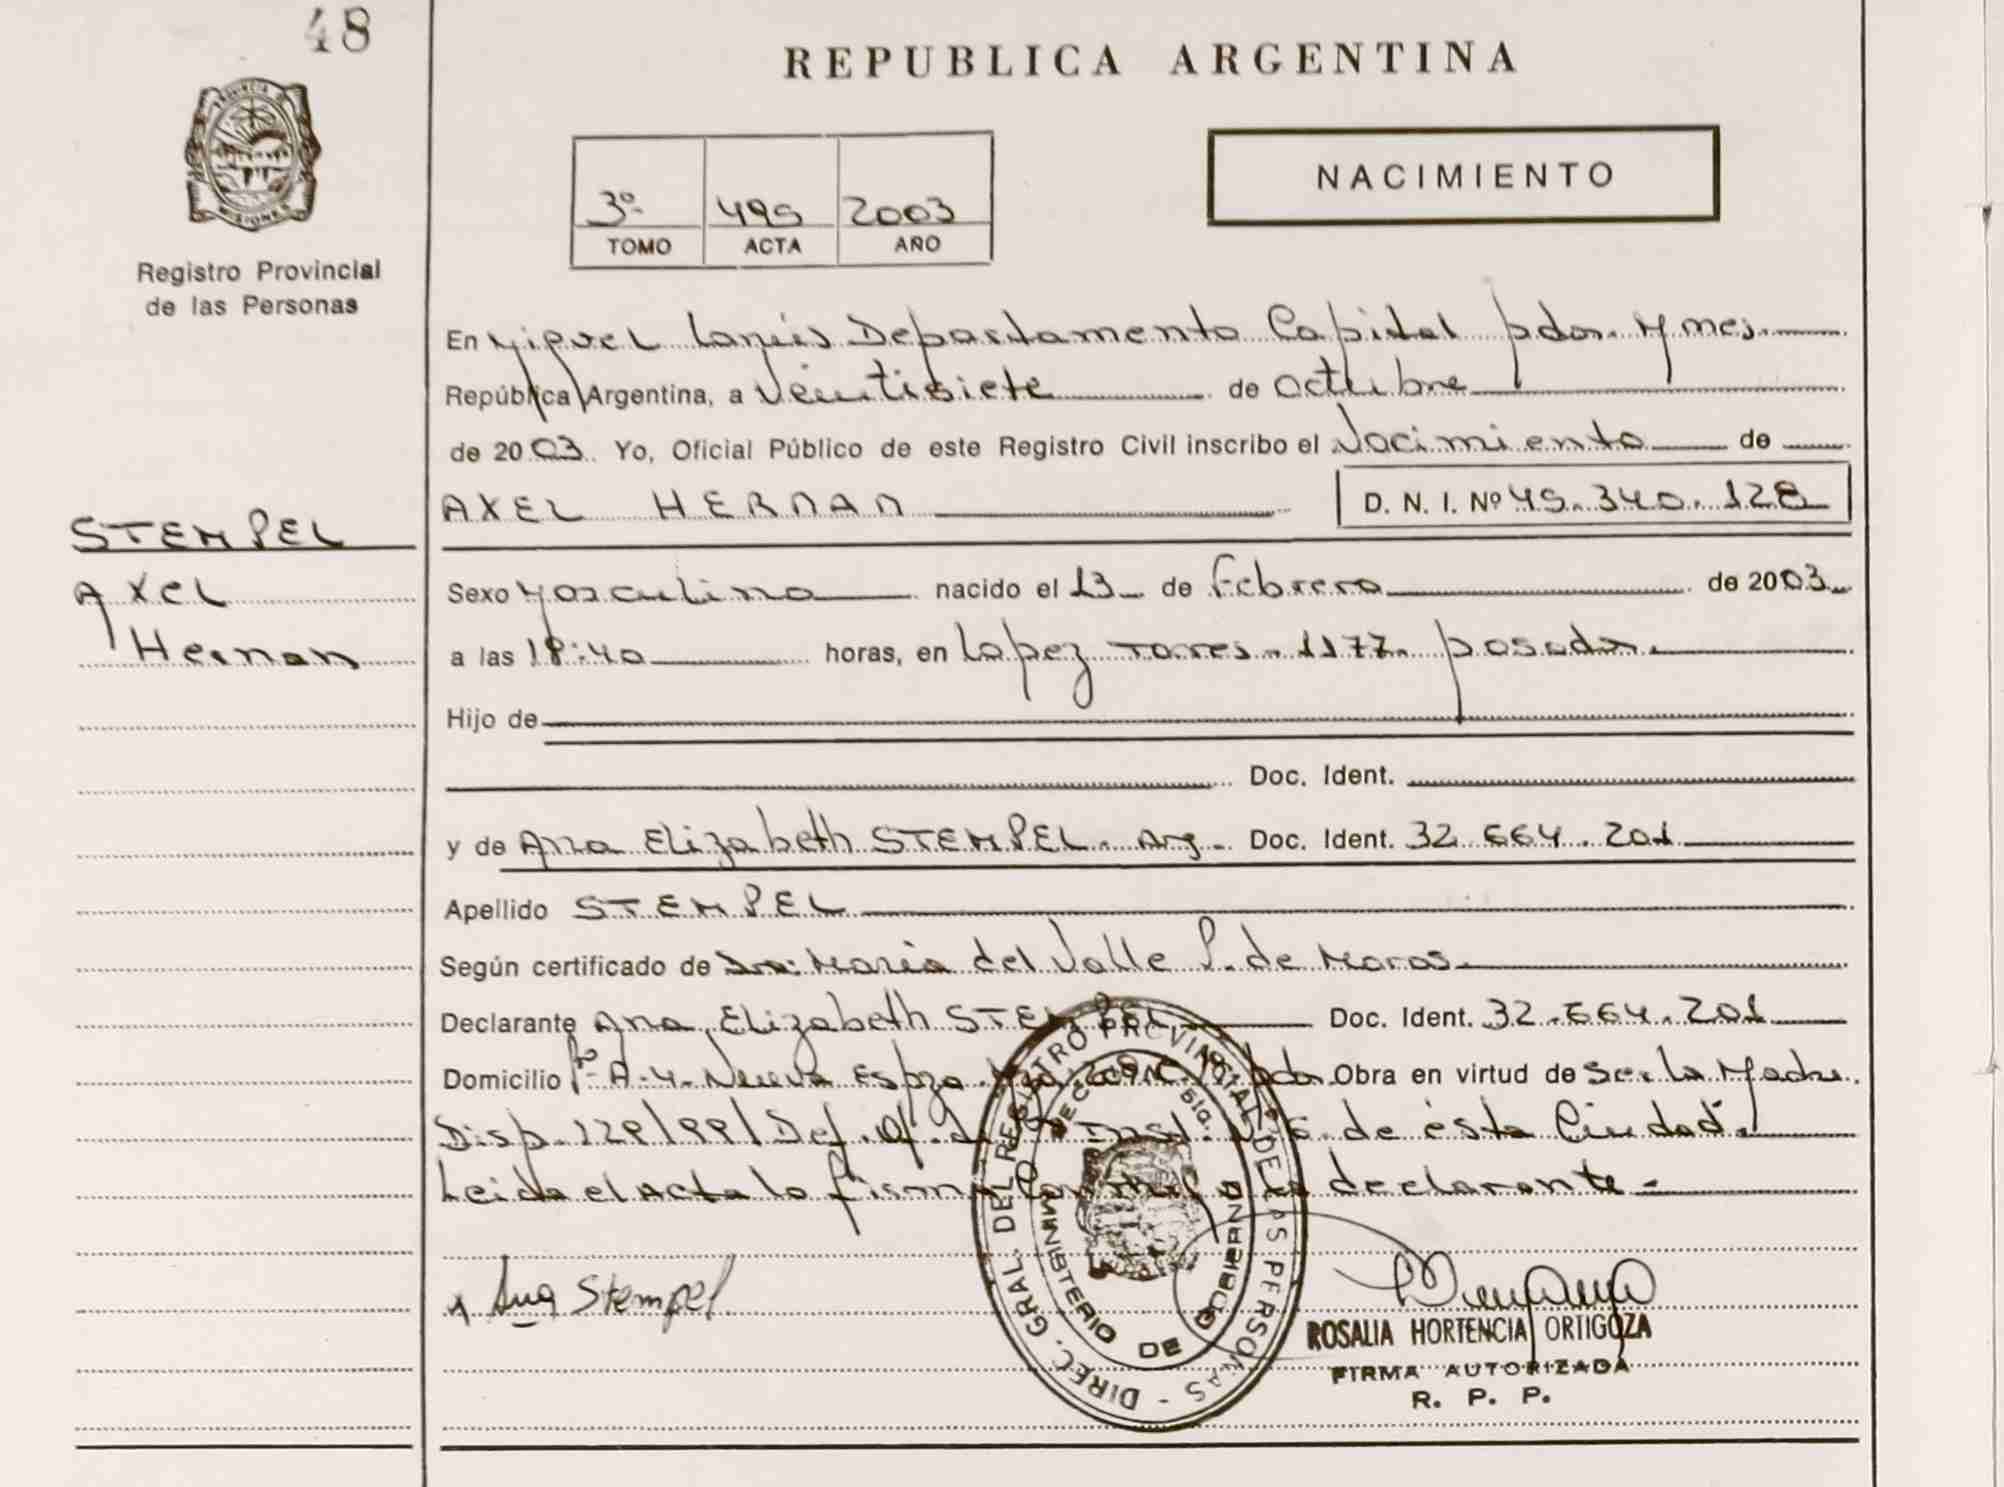 48
REPUBLICA ARGENTINA
PROVINCIA DE
MISIONES
Registro Provincial
de las Personas
3º 495 2003
TOMO ACTA AÑO
NACIMIENTO
En Miguel Lanús Departamento Capital pdas. Mnes.
República Argentina, a veintisiete de octubre
de 2003. Yo, Oficial Público de este Registro Civil inscribo el Nacimiento de
AXEL HERNAN D. N. I. Nº 45.340.128
STEMPEL
Axel
Hernan
Sexo Masculino nacido el 13 de Febrero de 2003
a las 18:40 horas, en Lopez Torres 1177. posadas.
Hijo de
Doc. Ident.
y de Ana Elizabeth STEMPEL. Arg. Doc. Ident. 32.664.201
Apellido STEMPEL
Según certificado de Dra: Maria del Valle P. de Moras
Declarante Ana Elizabeth STEMPEL Doc. Ident. 32.664.201
Domicilio A-4 Nueva Espza. pdas. Obra en virtud de Ser la Madre.
Disp. 128/99/Def. Of. de de ésta Ciudad.
Leida el Acta lo firma la declarante.-
Ana Stempel
DIREC. GRAL. DEL REGISTRO PROVINCIAL DE LAS PERSONAS
MINISTERIO DE GOBIERNO
ROSALIA HORTENCIA ORTIGOZA
FIRMA AUTORIZADA
R. P. P.